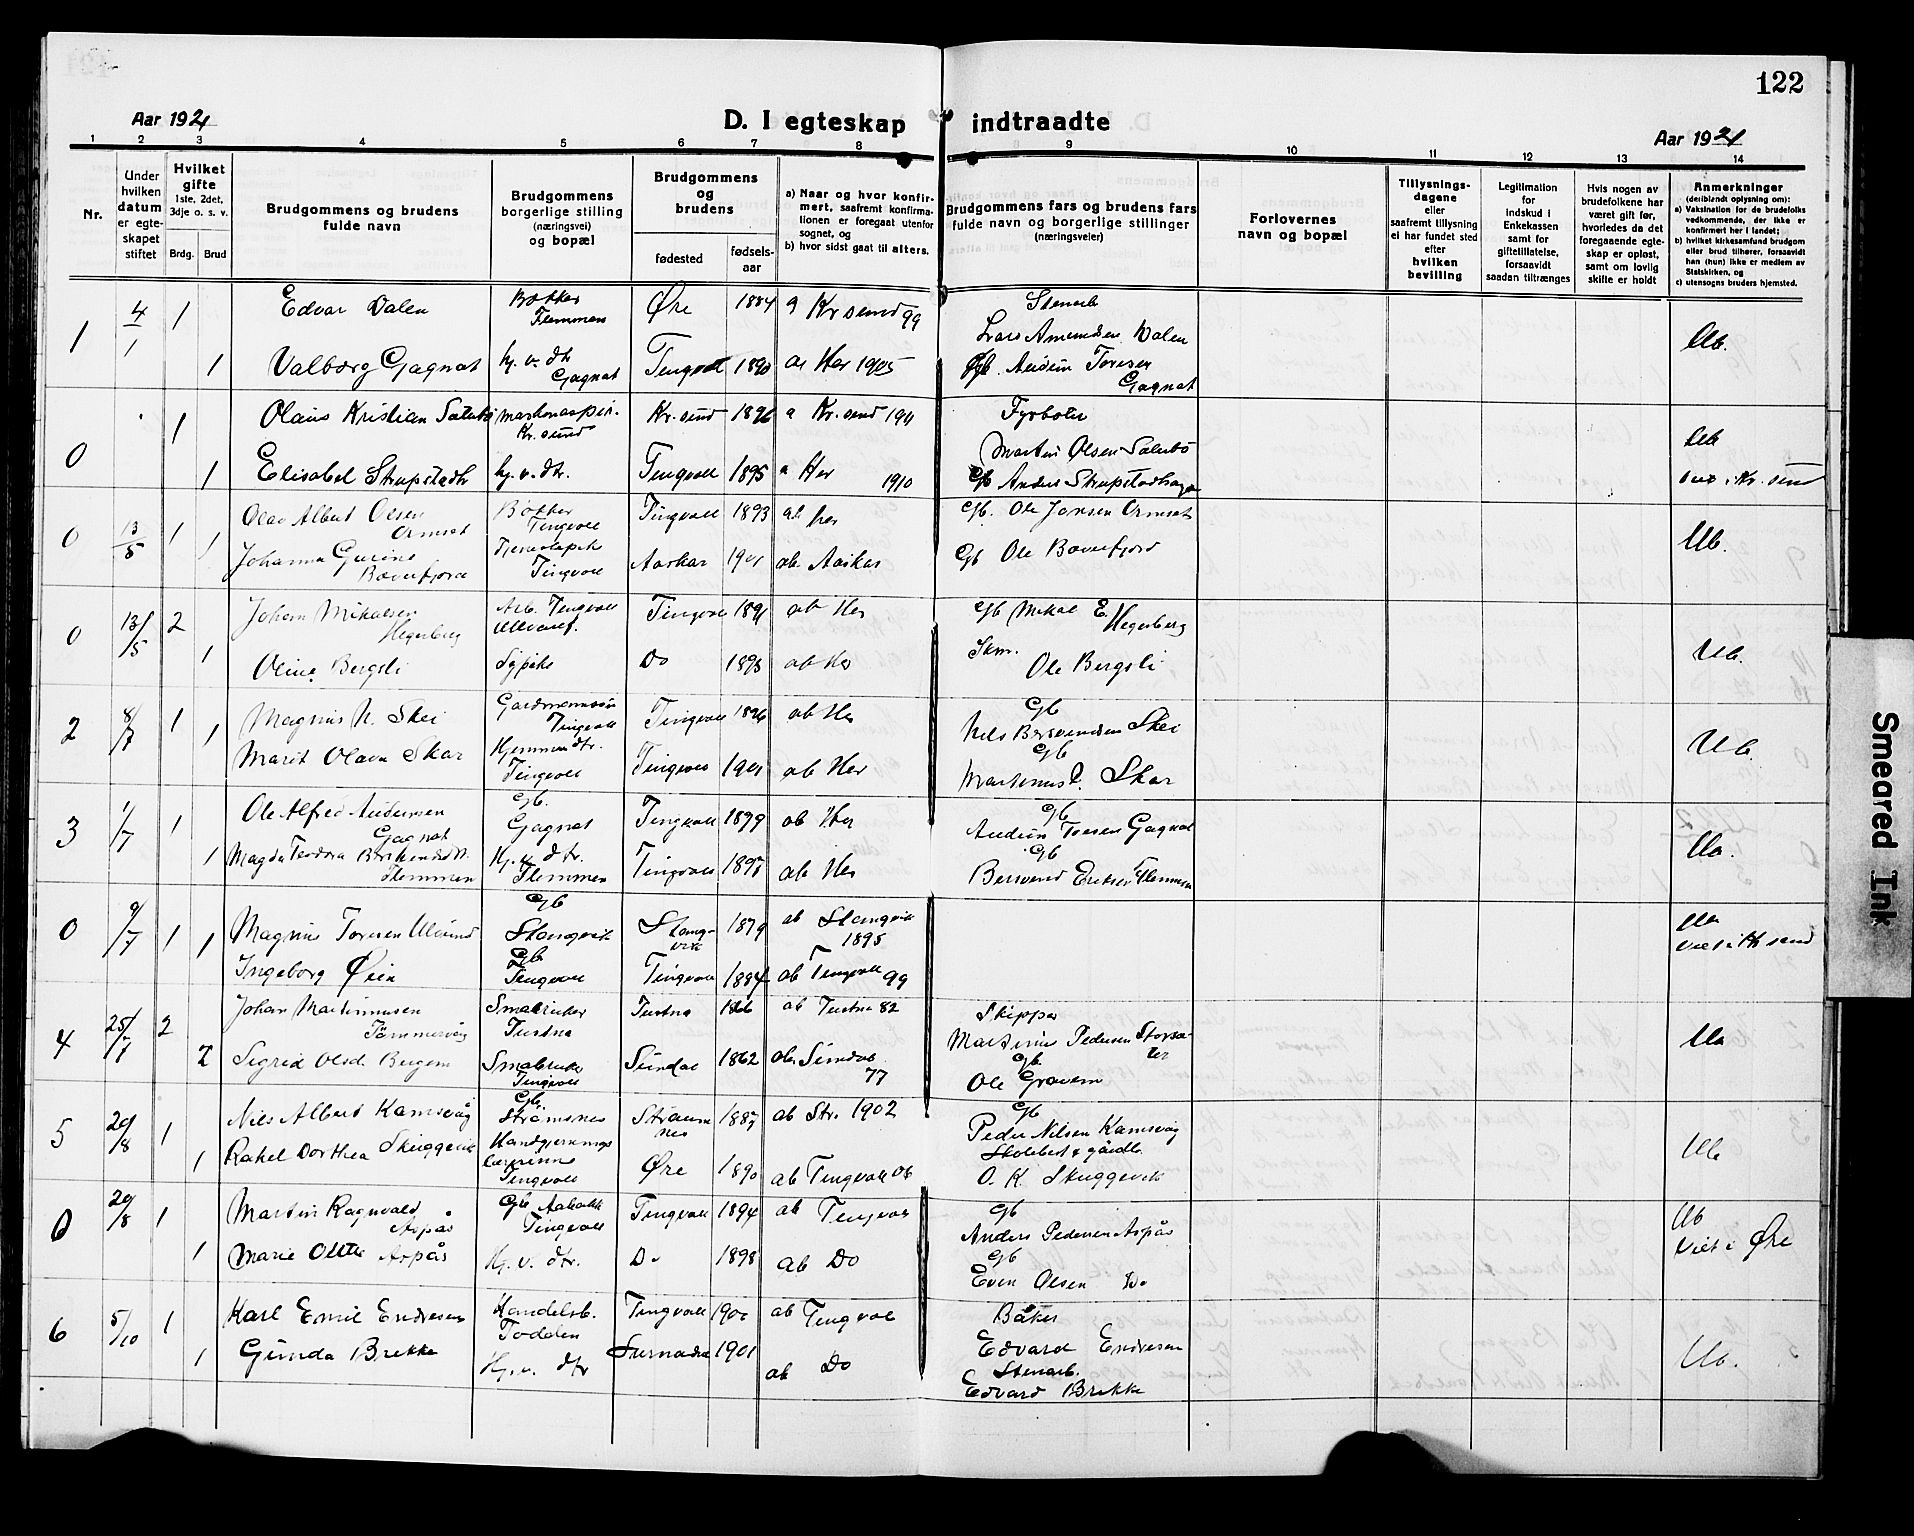 122
Aar 1921
D. I egteskap indtraadte
Aar 1921
1 2 3 4 5 6 7 8 9 10 11 12 13 14
Nr.
Under hvilken datum er egteskapet stiftet
Hvilket gifte 1ste, 2det, 3dje o. s. v.
Brdg. Brud
Brudgommens og brudens fulde navn
Brudgommens borgerlige stilling (næringsvei) og bopæl
Brudgommens og brudens
fødested
fødsels-aar
a) Naar og hvor konfirmert, saafremt konfirmationen er foregaat utenfor sognet, og
b) hvor sidst gaat til alters.
Brudgommens fars og brudens fars fulde navn og borgerlige stillinger (næringsveier)
Forlovernes navn og bopæl
Tillysningsdagene eller saafremt tillysning ei har fundet sted efter hvilken bevilling
Legitimation for indskud i Enkekassen samt for giftetillatelse, forsaavidt saadan tiltrænges
Hvis nogen av brudefolkene har været gift før, hvorledes da det foregaaende egteskap er opløst, samt om lovlig skifte er holdt
Anmerkninger (deriblandt oplysning om):
a) Vaksination for de brudefolks vedkommende, der ikke er konfirmert her i landet;
b) hvilket kirkesamfund brudgom eller brud tilhører, forsaavidt han (hun) ikke er medlem av Statskirken, og
c) utensogns bruders hjemsted.
1 4/1 1 Edvar Dalen Bøkker Flemmen Øre 1884 a Kr sund 99 Stenarb Lars Amundsen Dalen Ub.
1 Valborg Gagnat hj. v. dtr Gagnat Tingvoll 1890 a Her 1905 Gb. Audun Toresen Gagnat
0 1 Olaus Kristian Saltbø Kr. sund 1896 a Kr. sund 1911 Fyrbøter Martin Olsen Saltbø Ub
1 Elisabet Strupstadhr hj. v. dtr. Tingvoll 1895 a Her 1910 Gb Anders Strupstadhagen
0 13/5 1 Olav Albert Olsen Ormset Bøkker Tingvoll Tingvoll 1893 ab her Gb. Ole Jonsen Ormset Ub.
1 Johanna Gurine Bøverfjord Tjenestepike Tingvoll Aaskar 1901 ab Aaskar Gb Ole Bøverfjord
0 13/5 2 Johan Mikalsen Hegerberg Arb. Tingvoll Tingvoll 1891 ab Her Gb Mikal E. Hegerberg Ub.
1 Oline Bergsli Sypike Do 1898 ab Her Skm. Ole Bergsli
2 8/7 1 Magnus N. Skei Gardmannssøn Tingvoll Tingvoll 1896 ab Her Gb Nils Bersvendsen Skei Ub.
1 Marit Olava Skar Hjemmev dtr. Tingvoll Tingvoll 1901 ab Her Gb Martinus O. Skar
3 1/7 1 Ole Alfred Andersen Gagnat Gb. Gagnat Tingvoll 1899 ab Her Gb Audun Toresen Gagnat Ub
1 Magda Teodora Flemmen Hj. v. dtr. Flemmen Tingvoll 1897 ab Her Gb Bersvend Eriksen Flemmen
0 9/7 1 Magnus Toresen Ulvund Gb Stangvik Stangvik 1879 ab Stangvik 1895 Ub Viet i Kr sund
1 Ingeborg Øien Gb Tingvoll Tingvoll 1884 ab Tingvoll 99
4 25/7 2 Johan Martinussen Tømmervåg Smabruker Tustna Tustna 1866 ab Tustna 82 Skipper Martinus Pedersen Storsater Ub
2 Sigrid Olsd. Bergem Smabruker Tingvoll Sundal 1862 ab Sundal 77 Gb. Ole Gravem
5 20/8 1 Nils Albert Kamsvåg Gb. Strømsnes Straumsnes 1887 ab Str. 1902 Gb Peder Nilsen Kamsvåg Ub
1 Rakel Dorthea Skuggevik Handgjernings lærerinne Tingvoll Øre 1890 ab Tingvoll 06 O. K. Skuggevik
0 20/8 1 Martin Ragnvald Aspås Gb Tingvoll Tingvoll 1894 ab Tingvoll Gb Anders Pedersen Aspås Ub Viet i Øre
1 Marie Aspås Hj. v. dtr. Do 1898 ab Do Gb Even Olsen Do
6 5/10 1 Karl Emil Endresen Handelsb. Todden Tingvoll 1900 ab Tingvoll Baker Edvard Endresen Ub.
1 Gunda Brekke Hj. v. dtr Surnadal 1901 ab Do Stenarb. Edvard Brekke
Smeared Ink